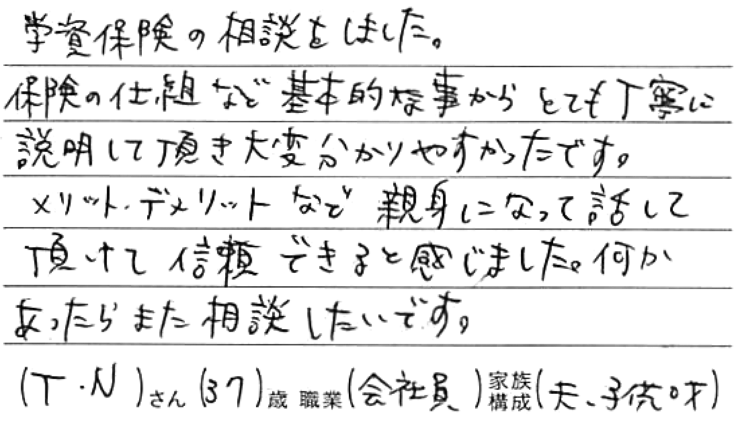 学資保険の相談をしました。
保険の仕組など基本的な事からとても丁寧に
説明して頂き大変分かりやすかったです。
メリット・デメリットなど親身になって話して
頂けて信頼できると感じました。何か
あったらまた相談したいです。
(T・N)さん(37)歳 職業(会社員)家族構成(夫、子供0才)